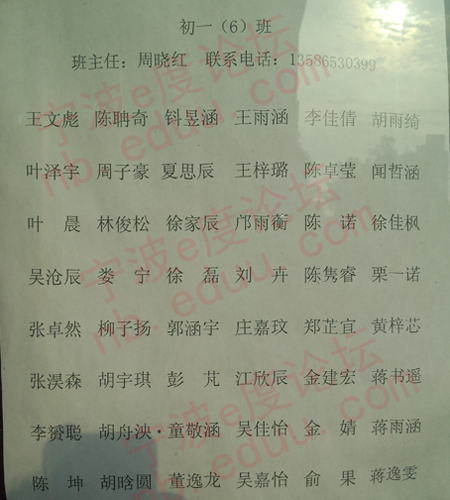 初一（6）班
班主任：周晓红 联系电话：13586530399
王文彪 陈聃奇 钭昱涵 王雨涵 李佳倩 胡雨绮
叶泽宇 周子豪 夏思辰 王梓璐 陈卓莹 闻哲涵
叶晨 林俊松 徐家辰 邝雨蘅 陈诺 徐佳枫
吴沧辰 娄宁 徐磊 刘卉 陈隽睿 栗一诺
张卓然 柳子扬 郭涵宇 庄嘉玟 郑芷宜 黄梓芯
张淏森 胡宇琪 彭芃 江欣辰 金建宏 蒋书遥
李赟聪 胡舟泱·童敬涵 吴佳怡 金婧 蒋雨涵
陈坤 胡晗圆 董逸龙 吴嘉怡 俞果 蒋逸雯
宁波e度论坛
nb.eduu.com
宁波e度论坛
nb.eduu.com
宁波e度论坛
nb.eduu.com